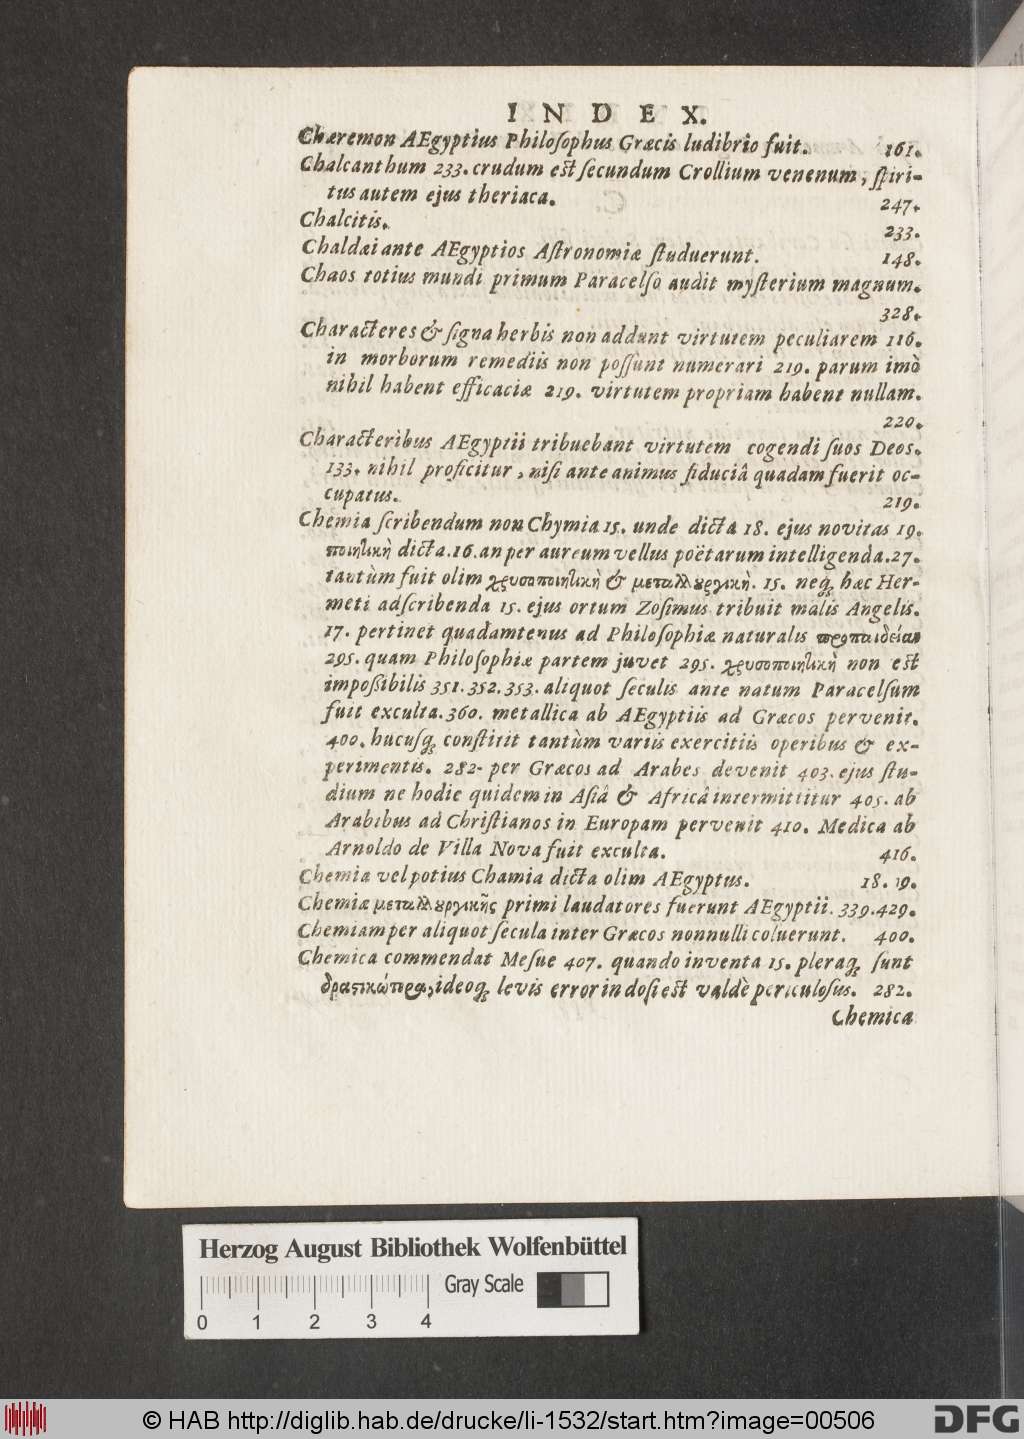 INDEX.
Chæremon AEgyptius Philoſophus Græcis ludibrio fuit. 161.
Chalcanthum 233. crudum eſt ſecundum Crollium venenum, ſpiri-
tus autem ejus theriaca. 247.
Chalcitis. 233.
Chaldæi ante AEgyptios Aſtronomiæ ſtuduerunt. 148.
Chaos totius mundi primum Paracelſo audit myſterium magnum.
328.
Characteres & ſigna herbis non addunt virtutem peculiarem 116.
in morborum remediis non poſſunt numerari 219. parum imò
nihil habent efficaciæ 219. virtutem propriam habent nullam.
220.
Characteribus AEgyptii tribuebant virtutem cogendi ſuos Deos.
133. nihil proficitur, niſi ante animus fiduciâ quadam fuerit oc-
cupatus. 219.
Chemia ſcribendum non Chymia 15. unde dicta 18. ejus novitas 19.
ποιητικὴ dicta. 16. an per aureum vellus poëtarum intelligenda. 27.
tantùm fuit olim χρυσοποιητικὴ & μεταλλουργικὴ. 15. neq; hæc Her-
meti adſcribenda 15. ejus ortum Zoſimus tribuit malis Angelis.
17. pertinet quadamtenus ad Philoſophiæ naturalis προπαιδείαν
295. quam Philoſophiæ partem juvet 295. χρυσοποιητικὴ non eſt
impoßibilis 351. 352. 353. aliquot ſeculis ante natum Paracelſum
fuit exculta. 360. metallica ab AEgyptiis ad Græcos pervenit.
400. hucuſq; conſtitit tantùm variis exercitiis operibus & ex-
perimentis. 282. per Græcos ad Arabes devenit 403. ejus ſtu-
dium ne hodie quidem in Aſiâ & Africâ intermittitur 405. ab
Arabibus ad Chriſtianos in Europam pervenit 410. Medica ab
Arnoldo de Villa Nova fuit exculta. 416.
Chemia vel potius Chamia dicta olim AEgyptus. 18. 19.
Chemiæ μεταλλουργικῆς primi laudatores fuerunt AEgyptii. 339. 429.
Chemiam per aliquot ſecula inter Græcos nonnulli coluerunt. 400.
Chemica commendat Meſue 407. quando inventa 15. pleraq; ſunt
ideoq; levis error in doſi eſt valdè periculoſus. 282.
Chemica
Herzog August Bibliothek Wolfenbüttel
Gray Scale
0 1 2 3 4
© HAB http://diglib.hab.de/drucke/li-1532/start.htm?image=00506
DFG